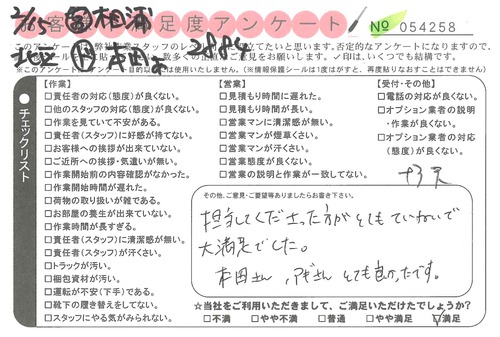 2/15
お客様満足度アンケート
№ 054258
2884
※このアンケートは目的以外には使用いたしません。(※情報保護シールは1度はがすと、再度貼りなおすことはできません)
チェックリスト
【作業】
□責任者の対応(態度)が良くない。
□他のスタッフの対応(態度)が良くない。
□作業を見ていて不安がある。
□責任者(スタッフ)に好感が持てない。
□お客様への挨拶が出来ていない。
□ご近所への挨拶・気遣いが無い。
□作業開始前の内容確認がなかった。
□作業開始時間が遅れた。
□荷物の取り扱いが雑である。
□お部屋の養生が出来ていない。
□作業時間が長すぎる。
□責任者(スタッフ)に清潔感が無い。
□責任者(スタッフ)が汗くさい。
□トラックが汚い。
□梱包資材が汚い。
□運転が不安(下手)である。
□靴下の履き替えをしてない。
□スタッフにやる気がみられない。
【営業】
□見積もり時間に遅れた。
□見積もり時間が長い。
□営業マンに清潔感が無い。
□営業マンが煙草くさい。
□営業マンが汗くさい。
□営業態度が良くない。
□営業の説明と作業が一致してない。
【受付・その他】
□電話の対応が良くない。
□オプション業者の説明・作業が良くない。
□オプション業者の対応(態度)が良くない。
その他、ご意見・ご要望等ありましたらお書き下さい。
担当してくださった方がとてもていねいで
大満足でした。
本田さん、アギさん とても良かったです。
☆当社をご利用いただきまして、ご満足いただけたでしょうか?
□不満 □やや不満 □普通 □やや満足 ☑満足